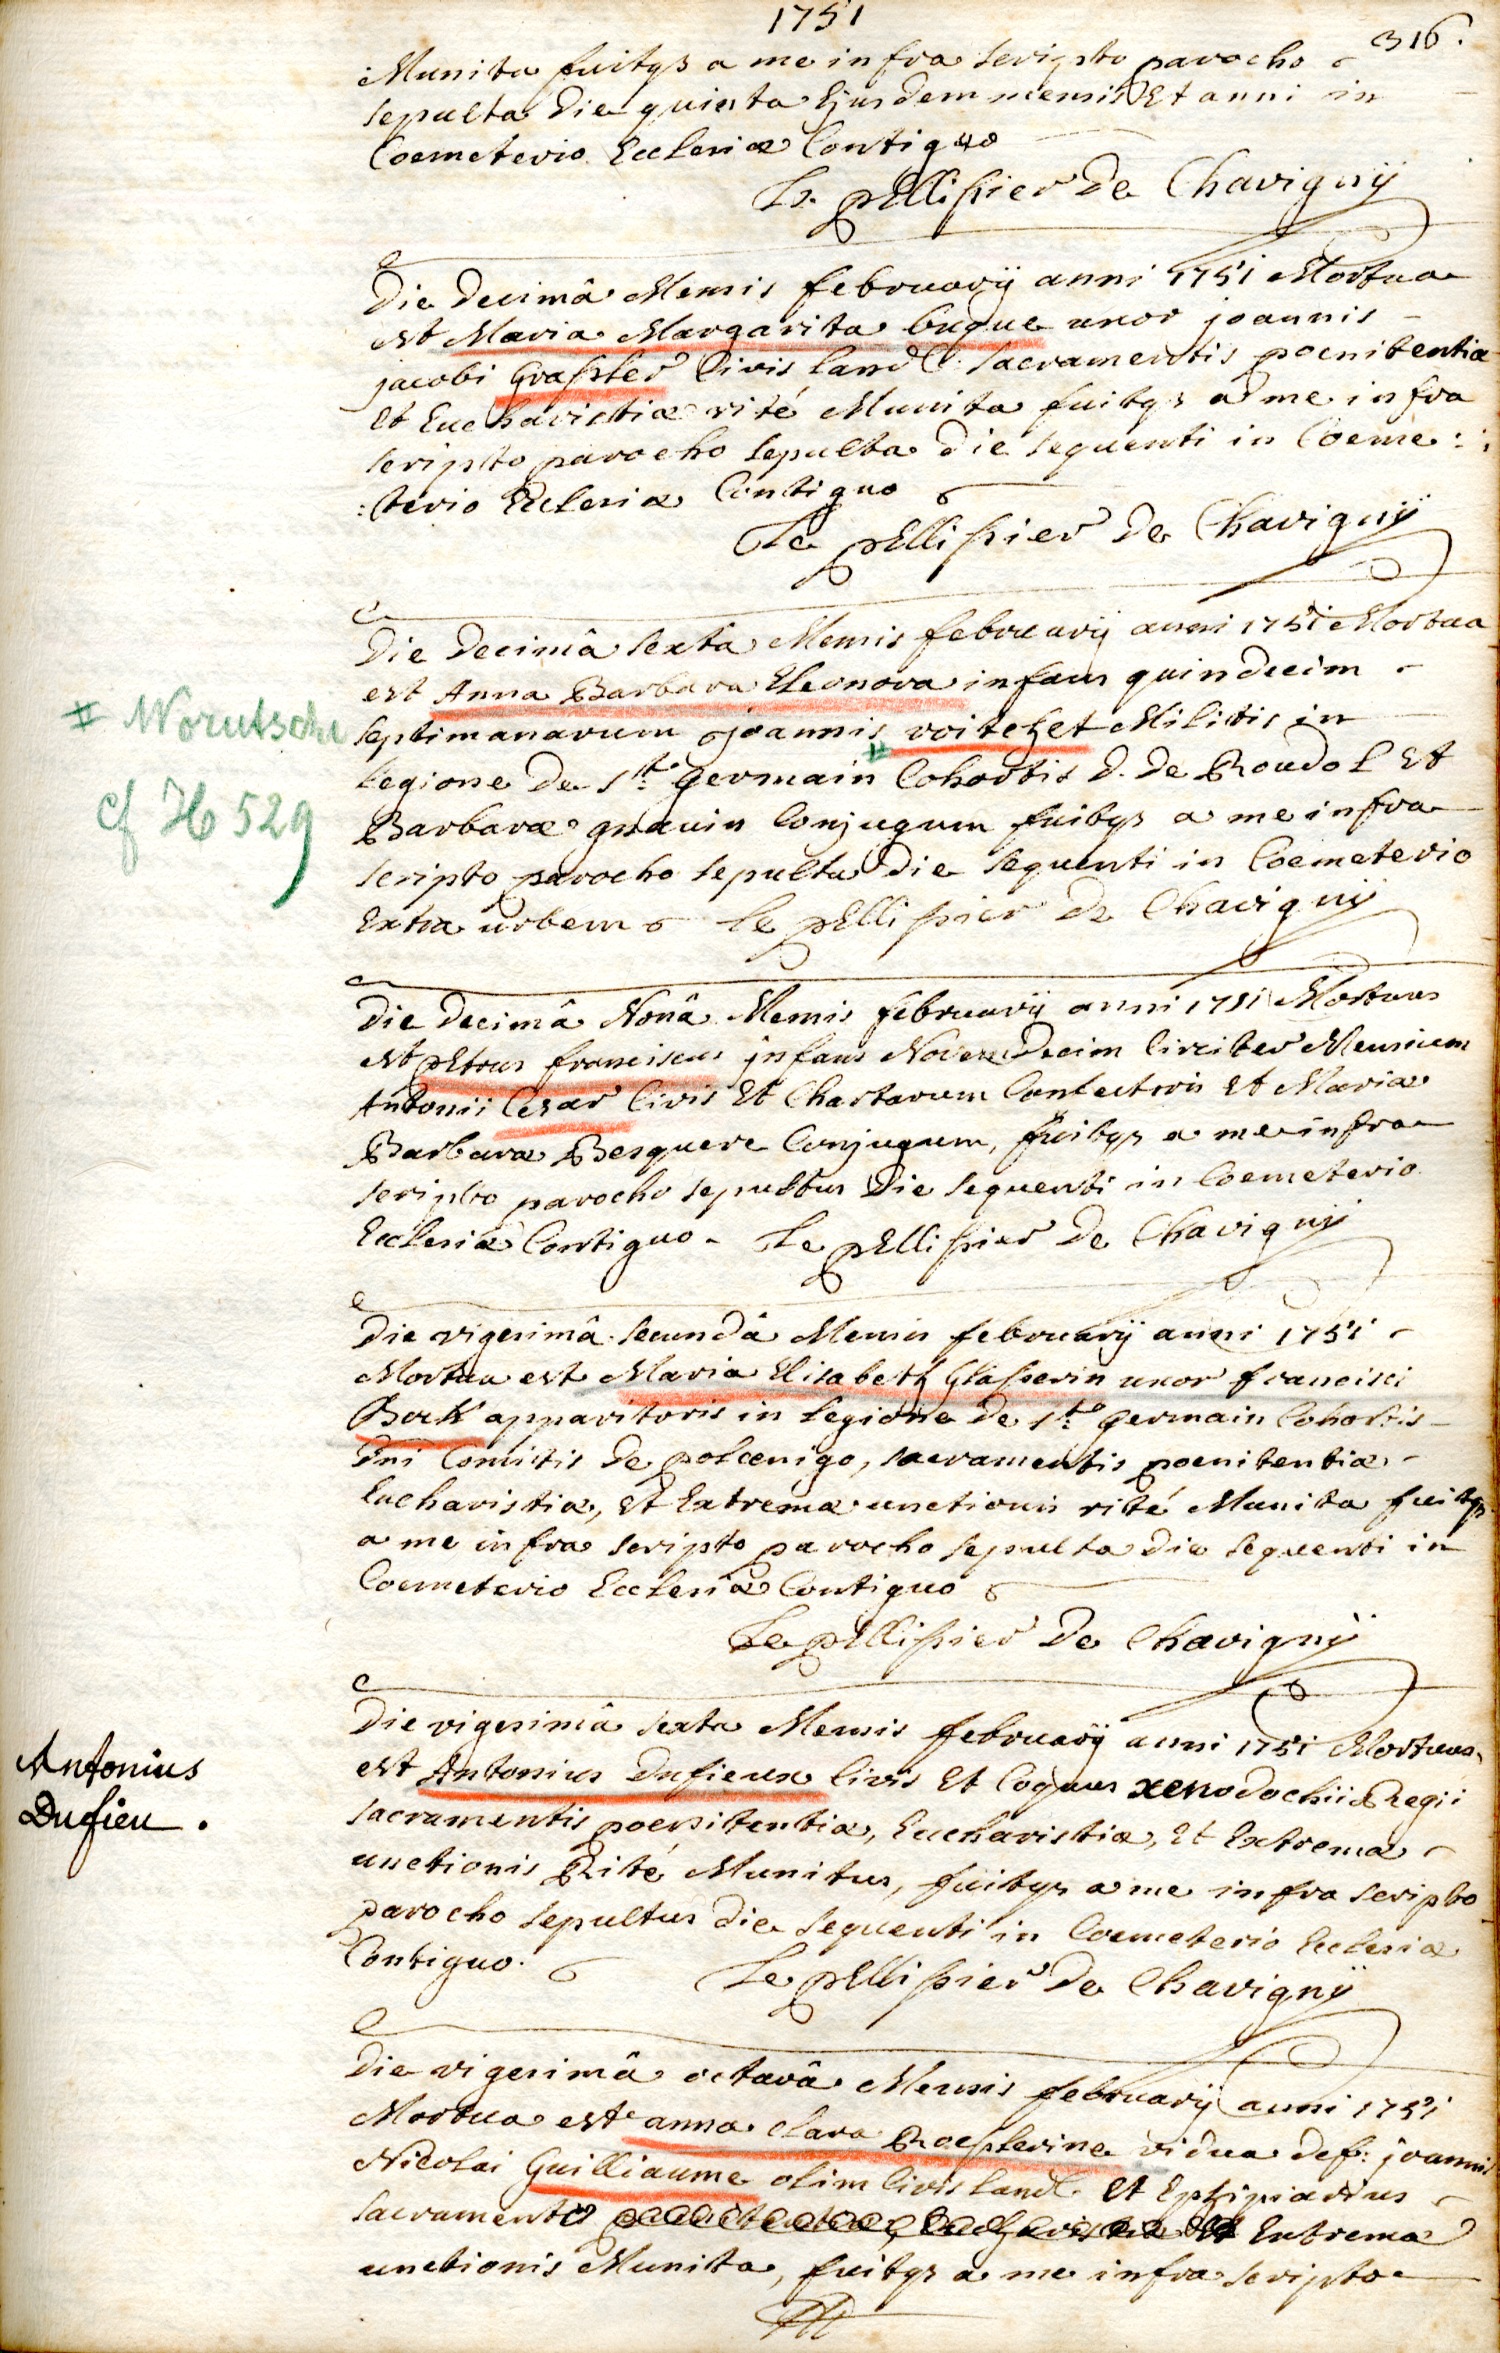 1751
316.
Munita fuitqs a me infra scripto parocho
sepulta die quinta Ejusdem mensis Et anni in
Coemeterio Ecclesiæ Contiguo
Le pEllissier De Chavignÿ
Die Decimâ Mensis februarÿ anni 1751 Mortua
est Maria Margarita buque uxor joannis
jacobi Grassler Civis land: sacramentis poenitentiæ
Et Eucharistiæ rité Munita fuitqs a me infra
scripto parocho sepulta Die sequenti in Coeme:
:terio Ecclesiæ Contiguo
Le pEllissier De Chavignÿ
Die Decimâ sexta Mensis februarij anni 1751 Mortua
est Anna Barbara Eleonora infans quindecim
septimanarum joannis voitchet Militis in
# Worutsche
Legione De st. germain Cohortis D. De Roudol Et
cf H 529
Barbaræ gnauin Conjugum fuitqs a me infra
scripto parocho sepulta Die sequenti in Coemeterio
Extra urbem Le pEllissier De Chavignÿ
Die Decimâ Nonâ Mensis februarÿ anni 1751 Mortuus
est pEtrus franciscus jnfans Novemdecim Circiter Mensium
Antonii Cesar Civis Et Chartarum Confectoris Et Mariæ
Barbaræ Besquere Conjugum, fuitqs a me infra
scripto parocho sepultus Die sequenti in Coemeterio
Ecclesiæ Contiguo - Le pEllissier De Chavignÿ
Die vigesimâ secundâ Mensis februarÿ anni 1751
Mortua est Maria Elisabeth Glasserin uxor francisci
Bock apparitoris in legione De st. germain Cohortis
Dni Comitis De polcenigo, sacramentis poenitentiæ
Eucharistiæ, Et Extremæ unctionis rité Munita fuitqs
a me infra scripto parocho sepulta die sequenti in
Coemeterio Ecclesiæ Contiguo
Le pEllissier De Chavignÿ
Die vigesimâ sexta Mensis februarÿ anni 1751 Mortuus
est Antonius Dufieux Civis Et Coquus xenodochii Regii
Antonius
Dufieu.
sacramentis poenitentiæ, Eucharistiæ, Et Extremæ
unctionis Rité Munitus, fuitqs a me infra scripto
parocho sepultus Die sequenti in Coemeterio Ecclesiæ
Contiguo. Le pEllissier De Chavignÿ
Die vigesimâ octavâ Mensis februarij anni 1751
Mortua est anna Clara Roesslerine vidua def: joannis
Nicolai Guilliaume olim Civis land. Et Ephipiarius
sacramento Extrema
unctionis Munita, fuitqs a me infra scripto